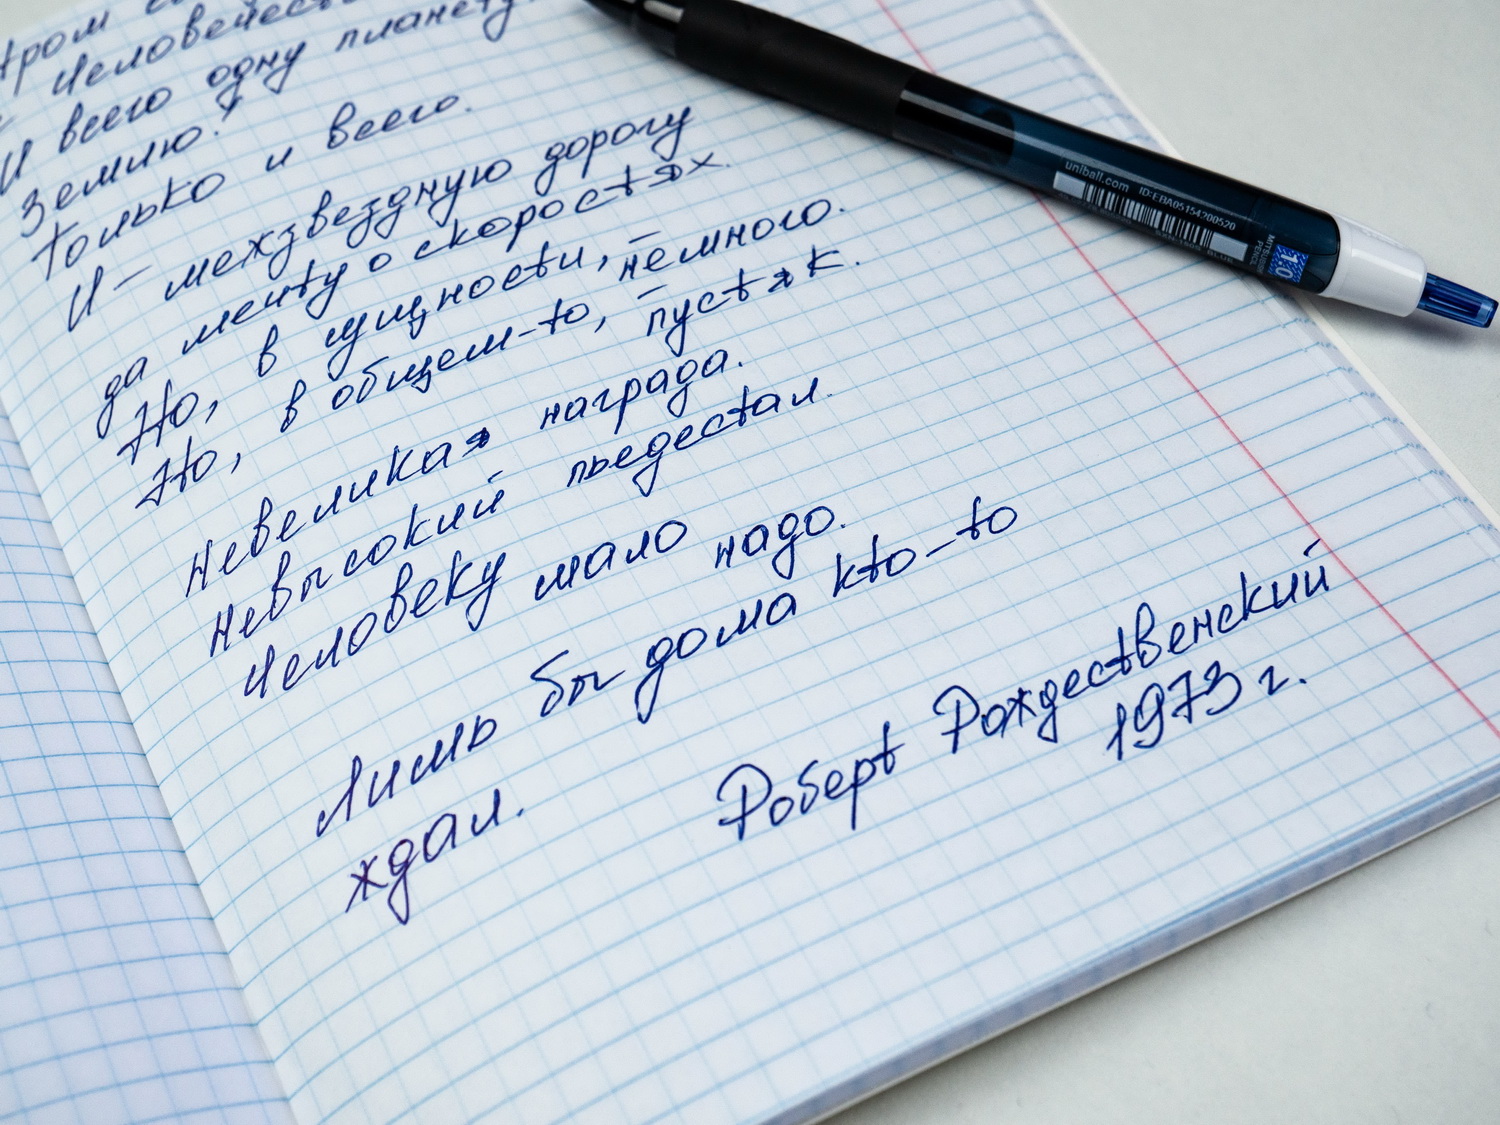 Гром
Человечест
И всего одну планету:
Землю!
Только и всего.
И – межзвездную дорогу
да мечту о скоростях.
Но, в сущности, – немного.
Но, в общем-то, – пустяк.
Невеликая награда.
Невысокий пьедестал.
Человеку мало надо.
Лишь бы дома кто-то
ждал.
Роберт Рождественский
1973 г.
uniball.com ID:EBA05154200520
MITSUBISHI
PENCIL
BLUE
1.0